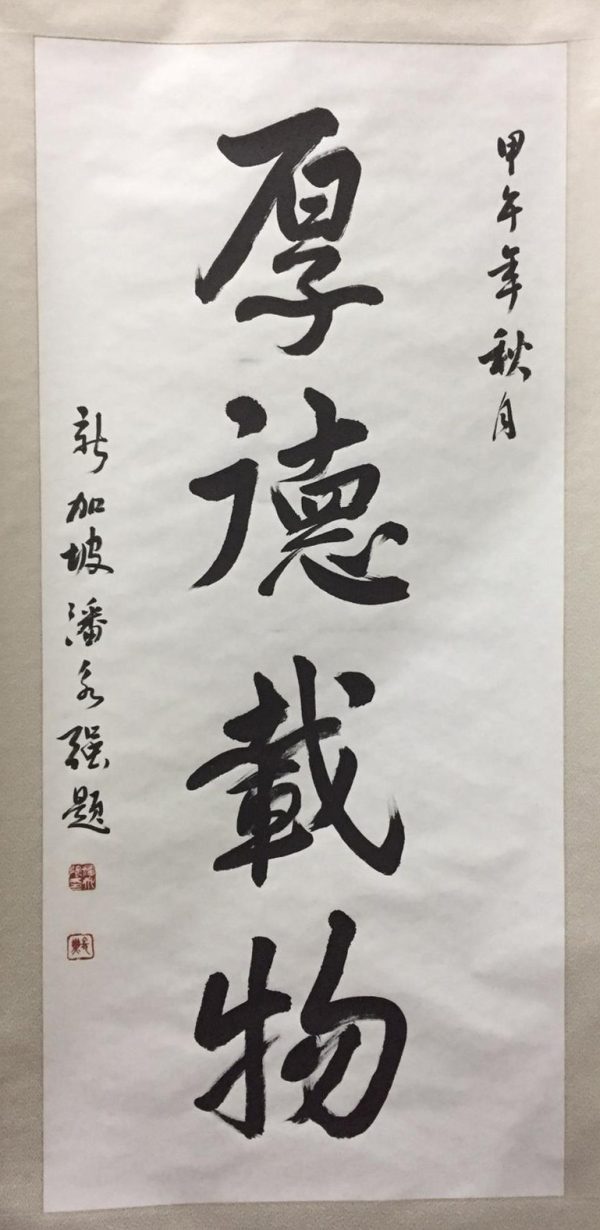 甲午年秋月
厚德載物
新加坡潘永強題